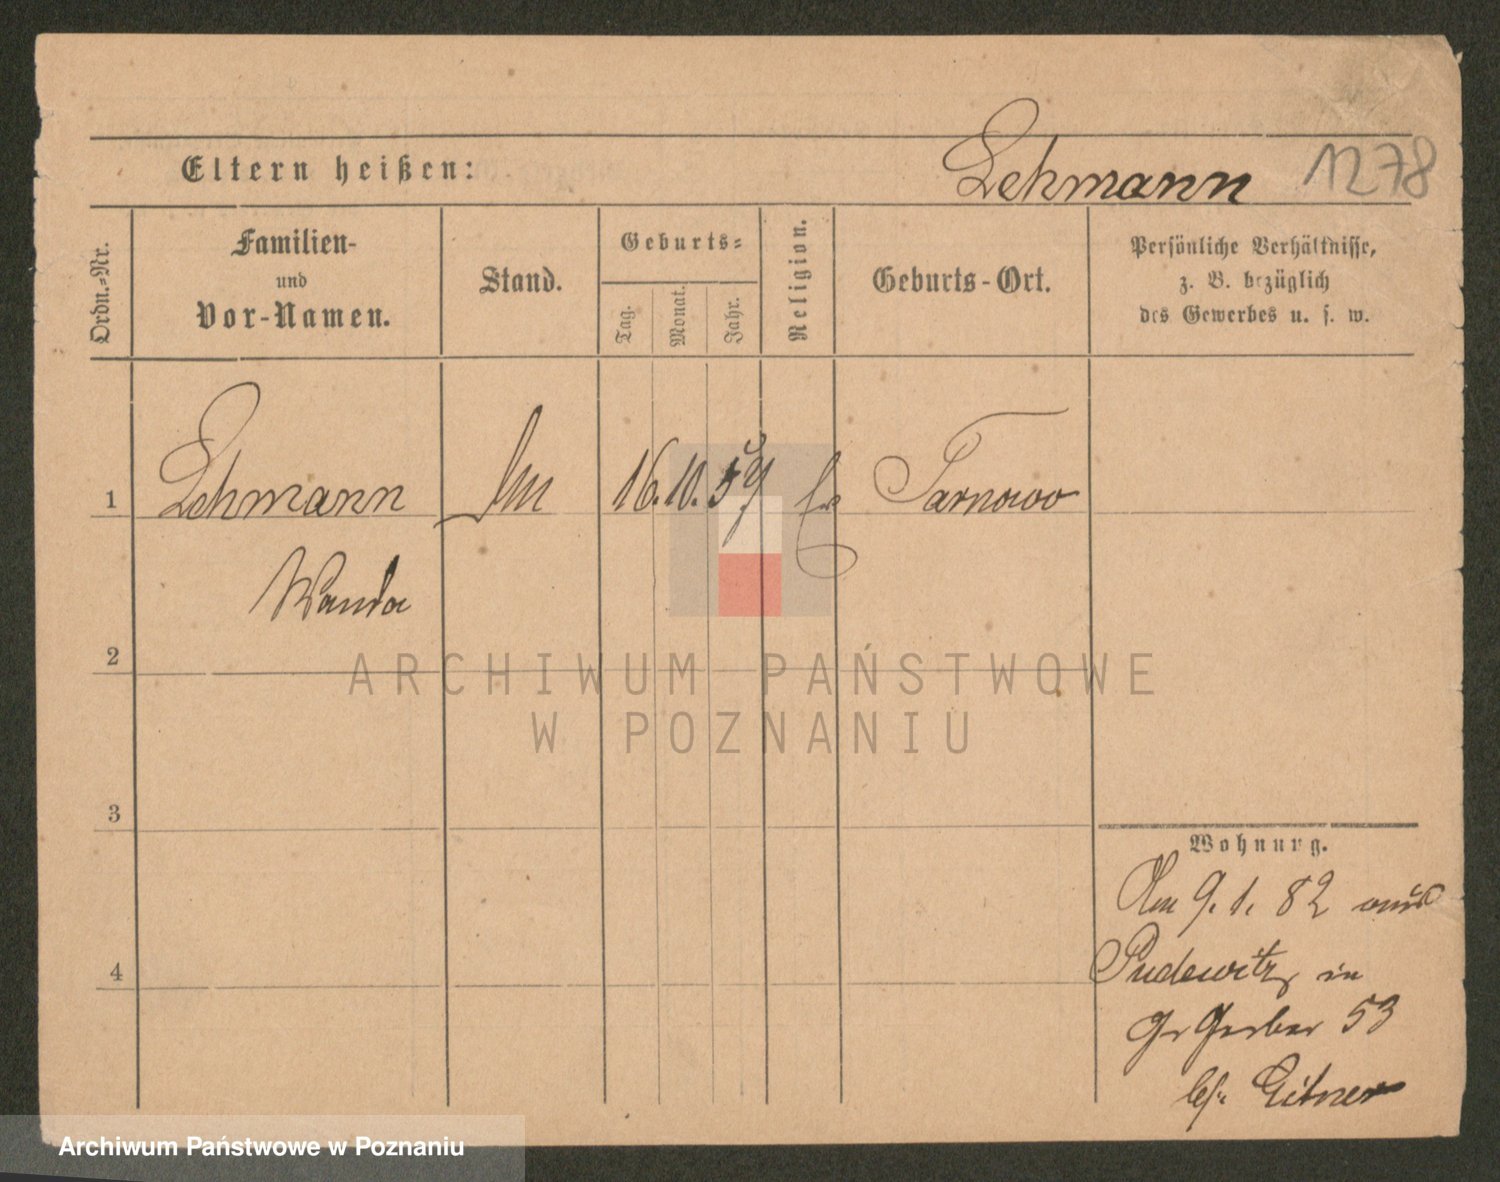 Eltern heißen:
Lehmann 1278
Ordn.-Nr.
Familien-
und
Vor-Namen.
Stand.
Geburts-
Tag.
Monat.
Jahr.
Religion.
Geburts-Ort.
Persönliche Verhältnisse,
z. B. bezüglich
des Gewerbes u. s. w.
1 Lehmann 16. 10. 59 Tarnowo
Wanda
2
3
4
Wohnung.
Am 9. 1. 82 aus
Pudewitz in
Gr Gerber 53
bei Eitner
ARCHIWUM PAŃSTWOWE
W POZNANIU
Archiwum Państwowe w Poznaniu